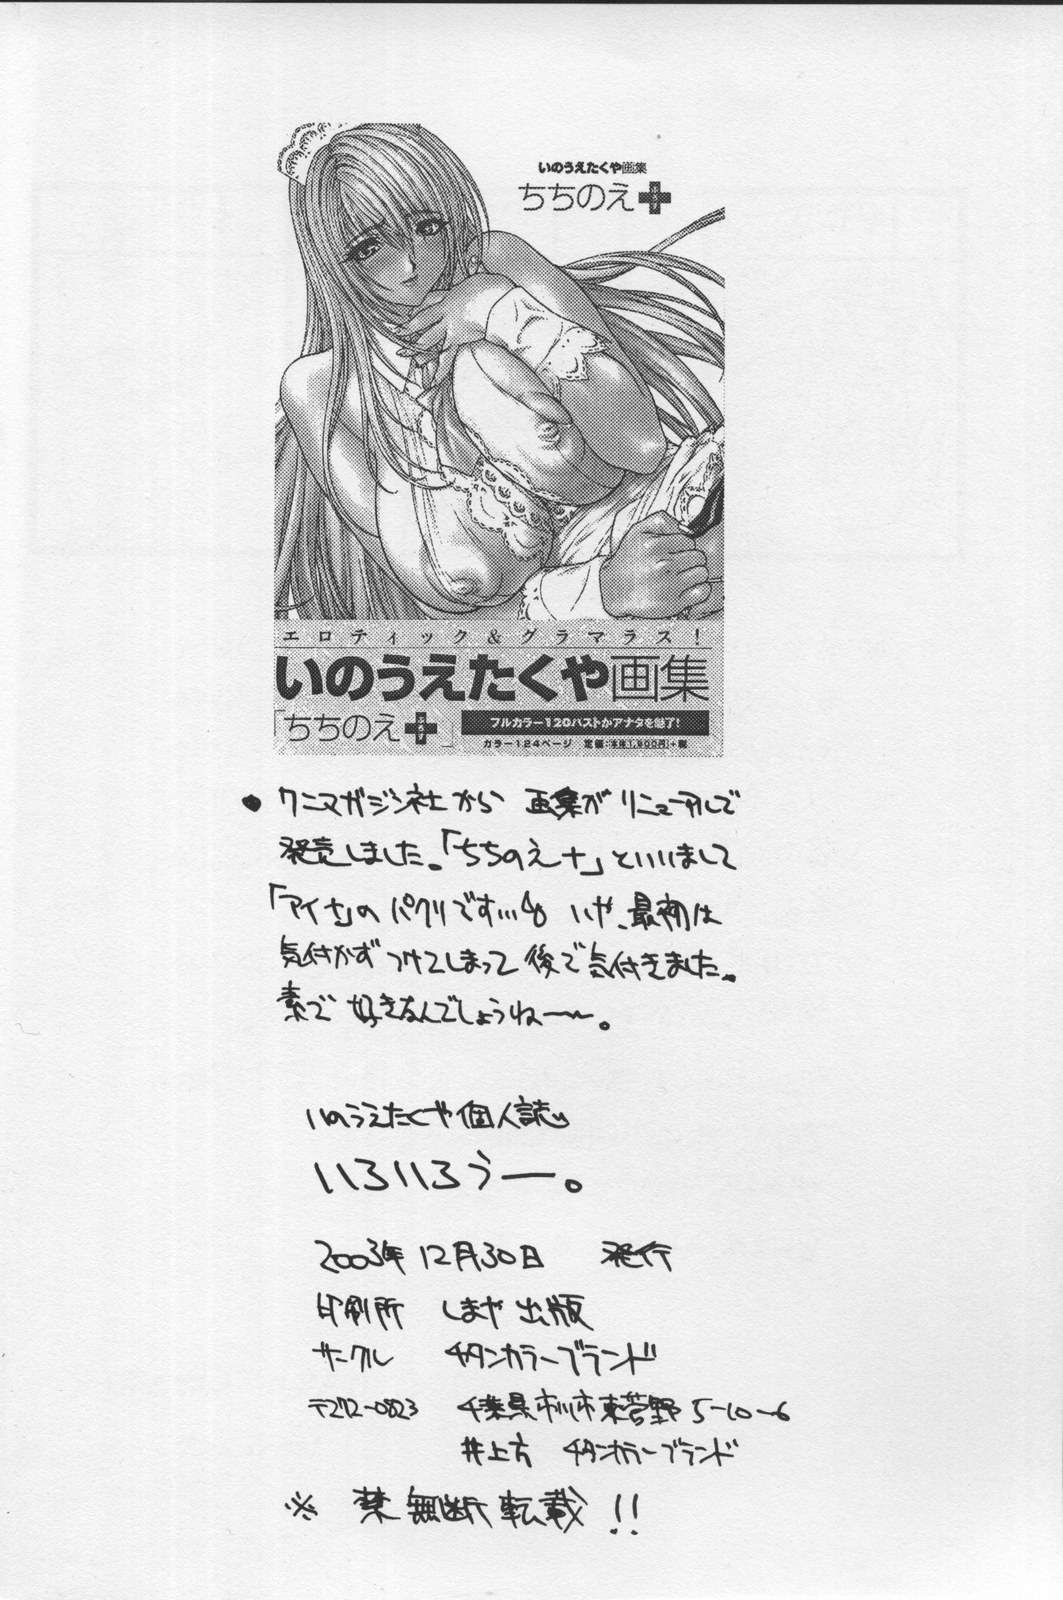 いのうえたくや画集
ちちのえ
ぷらす
エロティック&グラマラス!
いのうえたくや画集
「ちちのえ ぷらす」
フルカラー120バストがアナタを魅了!
カラー124ページ 定価:本体1,900円+税
● ワニマガジン社から 画集が リニューアルして
発売しました。「ちちのえ+」といいまして
のパクリです… いや、最初は
気付かず つけてしまって 後で気付きました。
素で 好きなんでしょうね〜〜。
いのうえたくや個人誌
いろいろうー。
2003年12月30日 発行
印刷所 しまや出版
サークル チタンカラーブランド
〒272-0823 千葉県市川市東菅野5-10-6
井上方 チタンカラーブランド
※ 禁無断転載!!